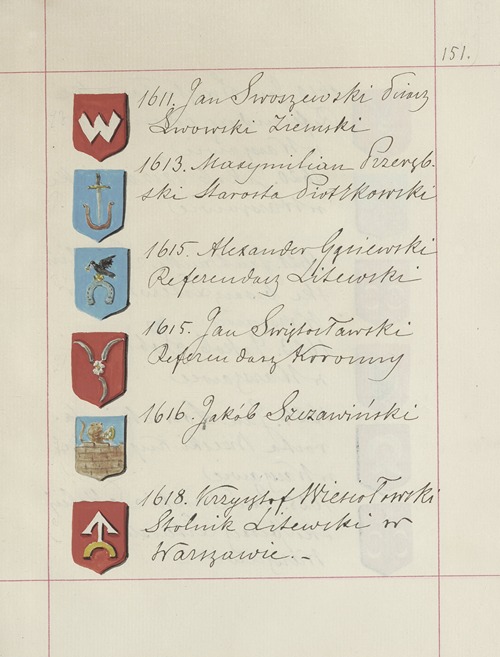 151.
1611. Jan Swoszewski Pisarz
Lwowski Ziemski
1613. Maxymilian Przeręb-
ski Starosta Piotrkowski
1615. Alexander Gąsiewski
Referendarz Litewski
1615. Jan Swiętosławski
Referendarz Koronny
1616. Jakób Szczawiński
1618. Krzysztof Wiesiołowski
Stolnik Litewski w
Warszawie.-
W